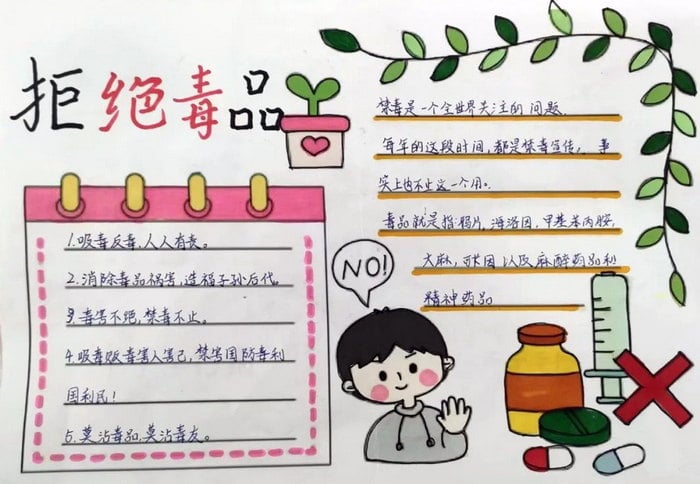 拒绝毒品
1.吸毒反毒,人人有责。
2.消除毒品祸害,造福子孙后代。
3.毒害不绝,禁毒不止。
4.吸毒贩毒害人害己,禁害国防毒利
国利民!
5.莫沾毒品,莫沾毒友。
禁毒是一个全世界关注的问题.
每年的这段时间,都是禁毒宣传, 事
实上内不止这一个用。
毒品就是指鸦片,海洛因,甲基苯丙胺,
大麻,可卡因以及麻醉药品和
精神药品
NO!